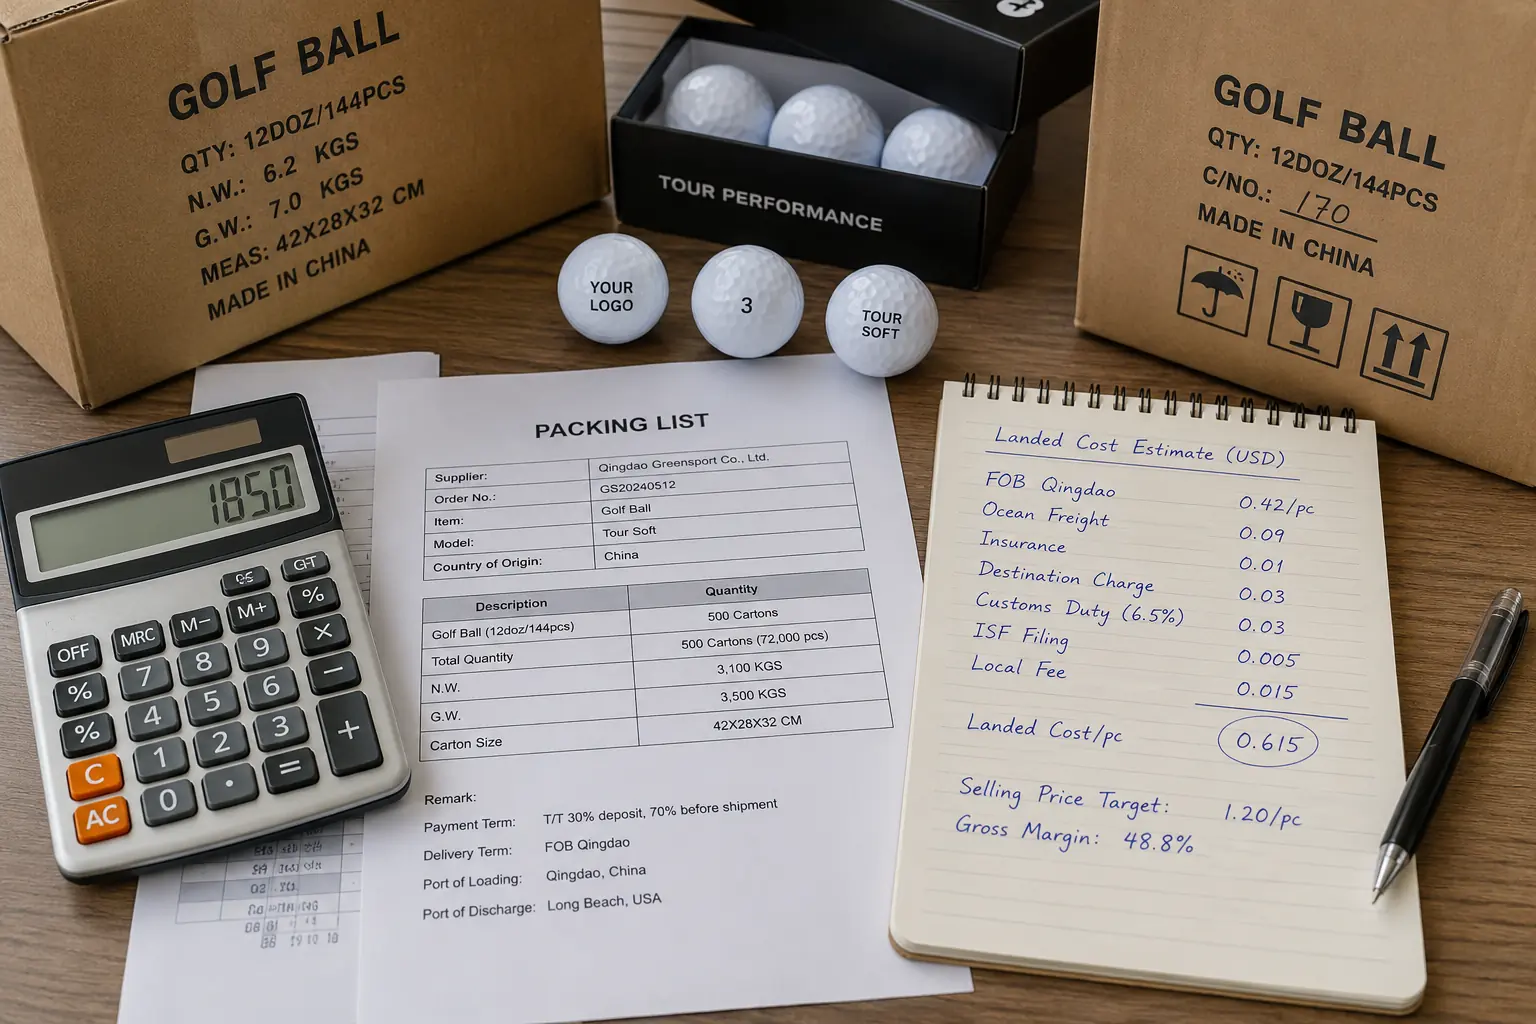 GOLF BALL
QTY: 12DOZ/144PCS
N.W.: 6.2 KGS
G.W.: 7.0 KGS
MEAS: 42X28X32 CM
MADE IN CHINA
TOUR PERFORMANCE
GOLF BALL
QTY: 12DOZ/144PCS
C/NO.: 170
MADE IN CHINA
YOUR
LOGO
3
TOUR
SOFT
1850
GT
% M+ M- MRC OFF
× 9 8 7 %
- 6 5 4 %
+ 3 2 1 C
= . 0 AC
PACKING LIST
Supplier: Qingdao Greensport Co., Ltd.
Order No.: GS20240512
Item: Golf Ball
Model: Tour Soft
Country of Origin: China
Description Quantity
Golf Ball (12doz/144pcs) 500 Cartons
Total Quantity 500 Cartons (72,000 pcs)
N.W. 3,100 KGS
G.W. 3,500 KGS
Carton Size 42X28X32 CM
Remark:
Payment Term: T/T 30% deposit, 70% before shipment
Delivery Term: FOB Qingdao
Port of Loading: Qingdao, China
Port of Discharge: Long Beach, USA
Landed Cost Estimate (USD)
FOB Qingdao 0.42/pc
Ocean Freight 0.09
Insurance 0.01
Destination Charge 0.03
Customs Duty (6.5%) 0.03
ISF Filing 0.005
Local Fee 0.015
Landed Cost/pc 0.615
Selling Price Target: 1.20/pc
Gross Margin: 48.8%